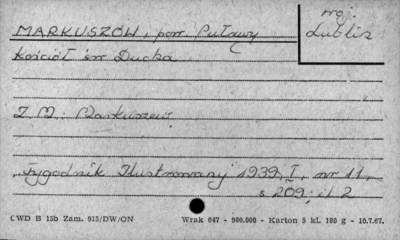 MARKUSZÓW, pow. Puławy
woj. Lublin
Kościół św Ducha
Z. M. Markuszew.
"Tygodnik Ilustrowany" 1939, I, nr 11,
s 209, il. 2
CWD B 15b Zam. 915/DW/ON Wrak 647 - 980.000 - Karton 5 kl. 180 g - 10.7.67.